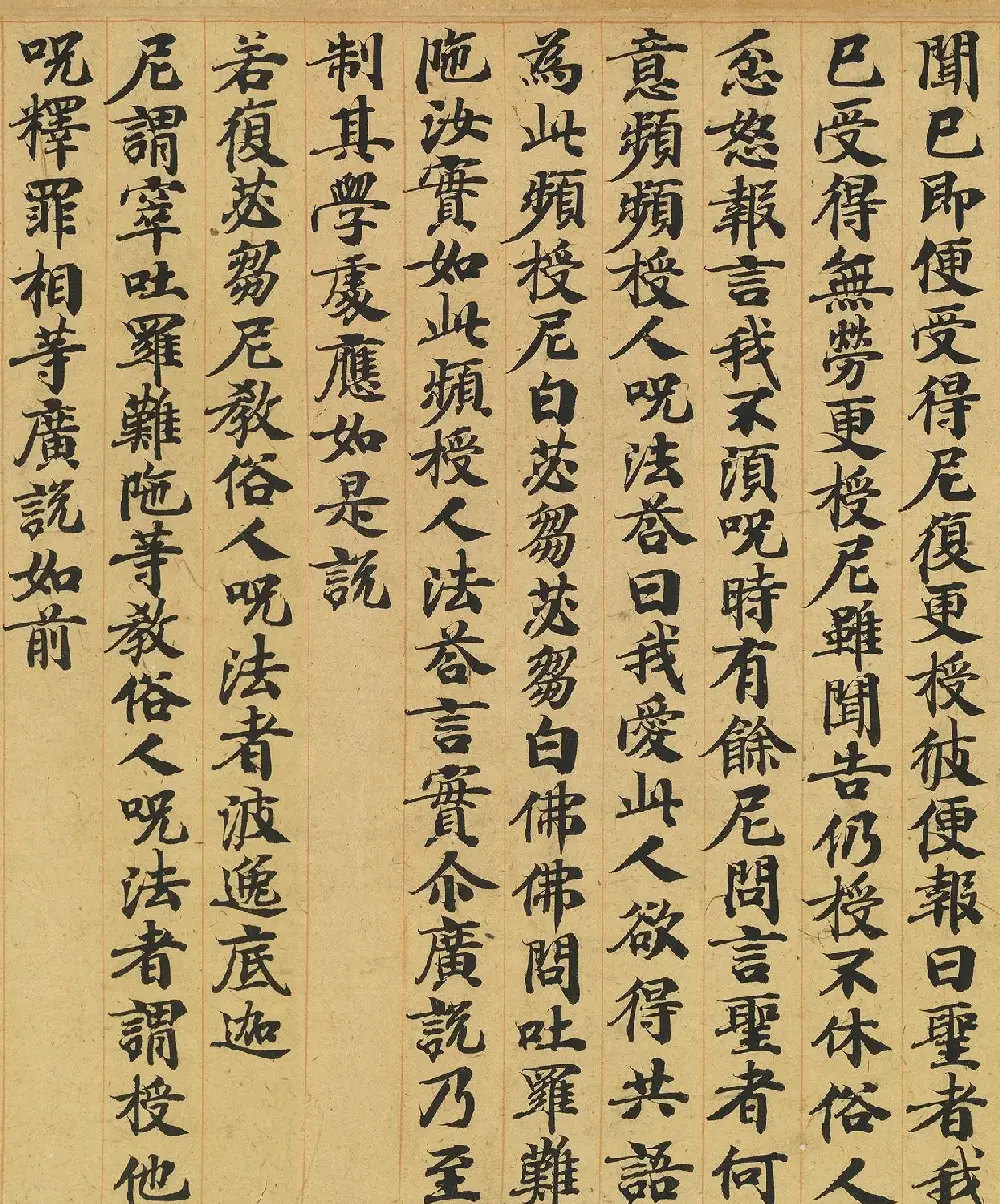 聞已即便受得尼復更授彼便報曰聖者我
已受得無勞更授尼雖聞告仍授不休俗人
忿怒報言我不須呪時有餘尼問言聖者何
意頻頻授人呪法荅曰我愛此人欲得共語
為此頻授尼白苾芻苾芻白佛佛問吐羅難
陁汝實如此頻授人法荅言實尒廣說乃至
制其學處應如是說
若復苾芻尼教俗人呪法者波逸底迦
尼謂窣吐羅難陁等教俗人呪法者謂授他
呪釋罪相等廣說如前